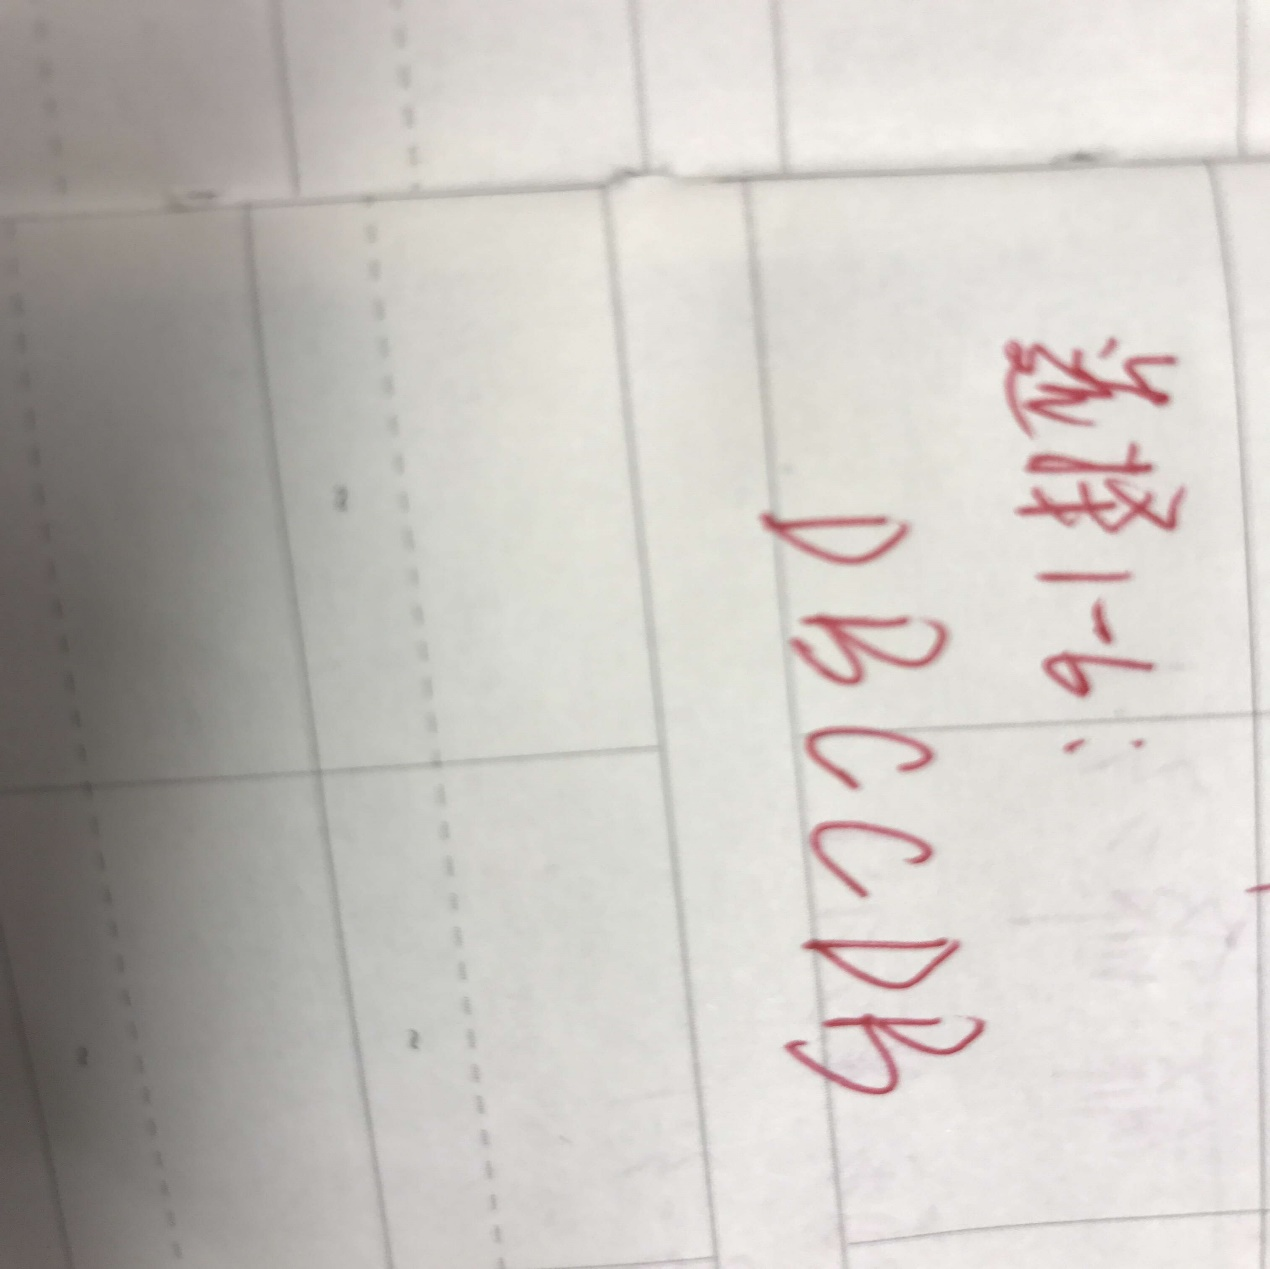 选择1-6:
D B C C D B